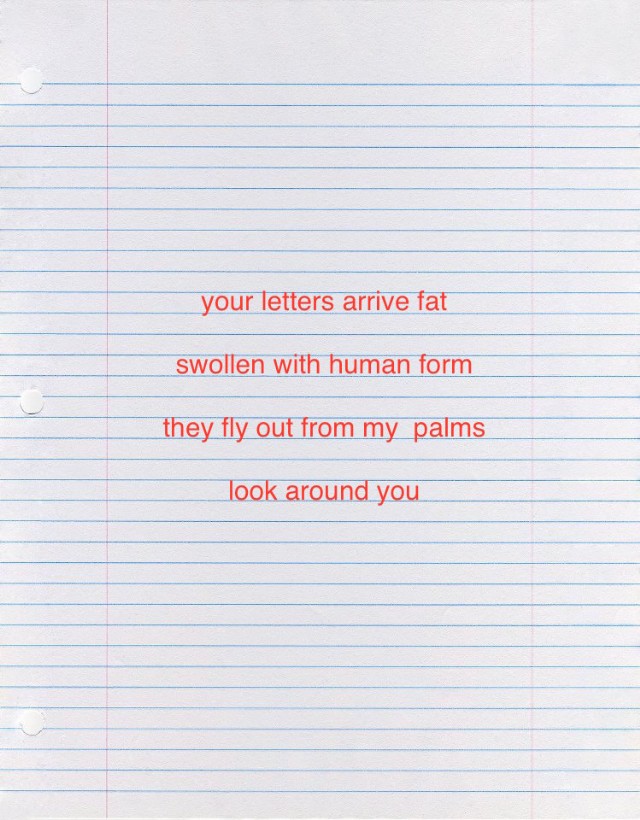 your letters arrive fat
swollen with human form
they fly out from my  palms
look around you